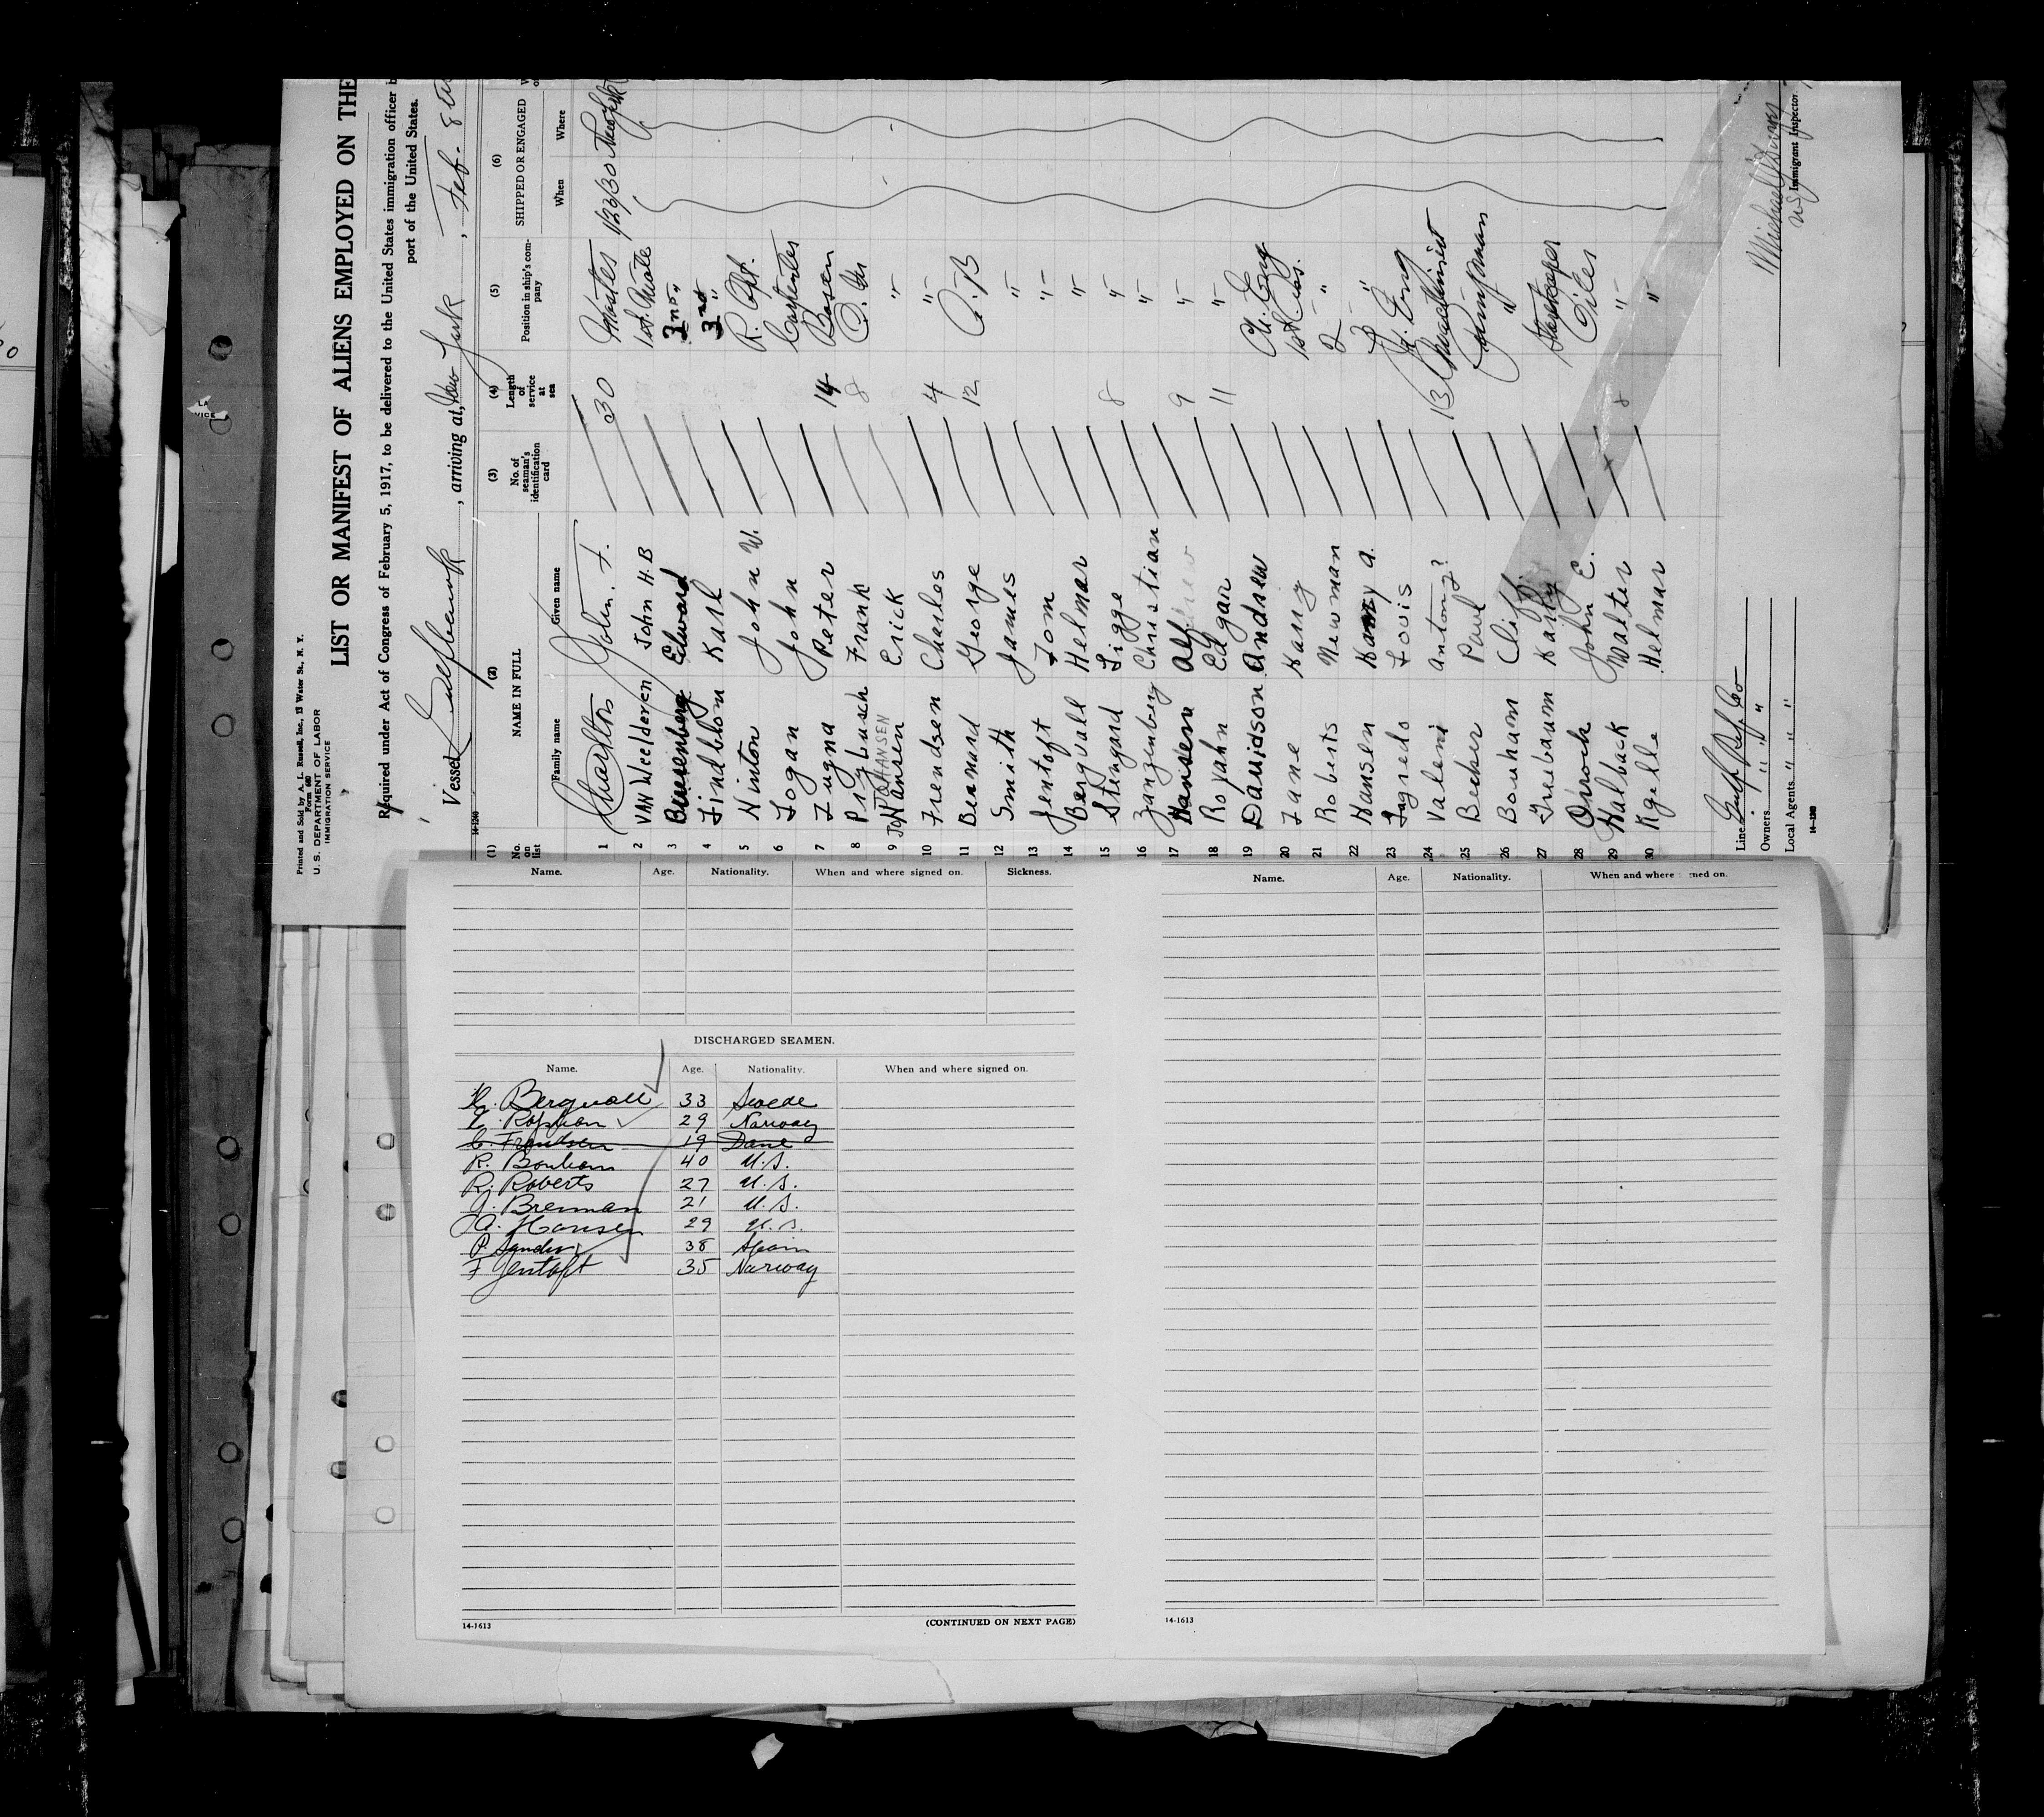 Printed and Sold by A. L. Russell, Inc., 13 Water St., N. Y.
Form 680
U. S. DEPARTMENT OF LABOR
IMMIGRATION SERVICE
LIST OR MANIFEST OF ALIENS EMPLOYED ON THE
Required under Act of Congress of February 5, 1917, to be delivered to the United States immigration officer
port of the United States.
Vessel, arriving at, New York, Feb. 8th
14-1240
(1) (2) (3) (4) (5) (6)
No. on list NAME IN FULL No. of seaman's identification card Length of service at sea Position in ship's company SHIPPED OR ENGAGED
Family name Given name When Where
1 Charlton John. F. 30 Master 1/23/30
2 VAN Weelderen John H. B 1st. Mate
3 Edward 2nd "
4 Lindblom Karl 3rd "
5 Hinton John W. R. Opt.
6 Logan John Carpenter
7 Zugna Peter 14 Bosen
8 Prylusch Frank 8
9 JOHANSEN Hansen Erick "
10 Frendsen Charles 4 "
11 Bernard George 12
12 Smith James "
13 Jentoft Tom "
14 Bergvall Helmar "
15 Stengard Sigge 8 "
16 Zangenberg Christian "
17 Hansen Alf 9 "
18 Roxahn Edgar 11 "
19 Davidson Andrew Ch. Eng
20 Lane Harry 1st. Ass.
21 Roberts Newman 2 " "
22 Hansen Harry A. 3 "
23 Lagredo Louis
24 Valeni Anton
25 Becker Paul Pumpman
26 Bonham Cliff. "
27 Grebaum Karl Storekeeper
28 Orrock John E. Oiler
29 Halback Walter 8 "
30 Kgelle Helmar "
Line Gulf Ref. Co
Owners " " "
Local Agents " " "
14-1240
Immigrant Inspector.
Name. Age. Nationality. When and where signed on. Sickness.
DISCHARGED SEAMEN.
Name. Age. Nationality. When and where signed on.
H. Bergvall 33 Swede
E. Roxahn 29 Norway
C. Frendsen 19 Dane
R. Bonham 40 U.S.
R. Roberts 27 U.S.
J. Brennan 21 U.S.
A. Hansen 29 U.S.
P. 38 Spain
F Jentoft 35 Norway
14-1613
(CONTINUED ON NEXT PAGE)
Name. Age. Nationality. When and where signed on.
14-1613